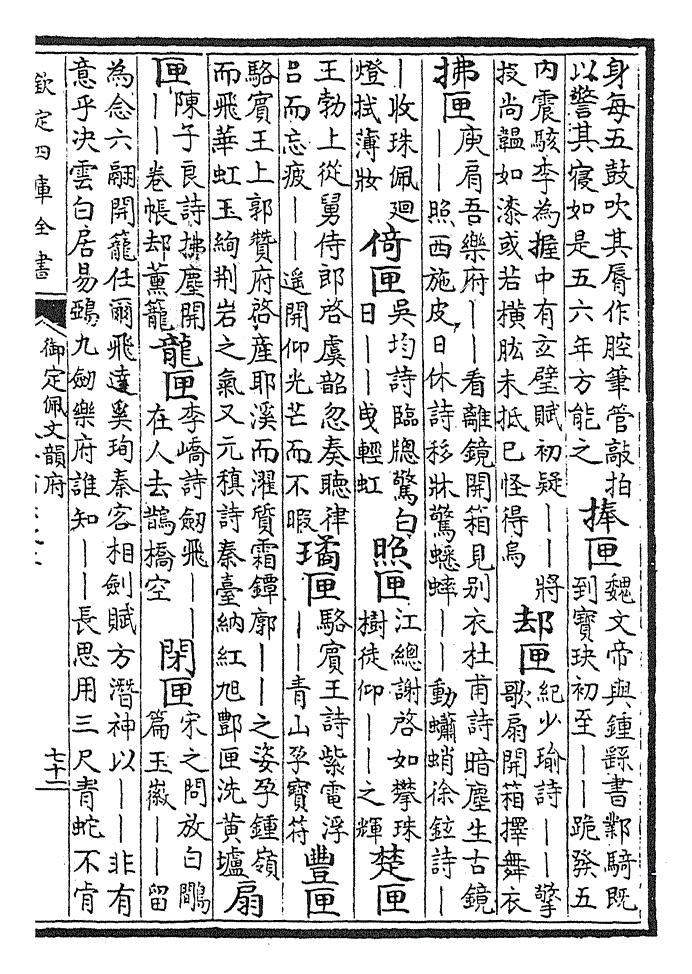 身每五鼓吹其脣作腔筆管敲拍
以警其寢如是五六年方能之
捧匣
魏文帝與鍾繇書鄴騎既
到寶玦初至――跪發五
內震駭李為握中有玄璧賦初疑――將
技尚韞如漆或若橫肱未抵已怪得烏
却匣
紀少瑜詩――擎
歌扇開箱擇舞衣
拂匣
庾肩吾樂府――看離鏡開箱見别衣杜甫詩暗塵生古鏡
――照西施皮日休詩移牀驚蟋蟀――動蠨蛸徐鉉詩―
―收珠佩廻
燈拭薄妝
倚匣
吳均詩臨牕驚白
日――曳輕虹
照匣
江總謝啓如攀珠
樹徒仰――之輝
楚匣
王勃上從舅侍郎啓虞韶忽奏聽律
呂而忘疲――遥開仰光芒而不暇
璚匣
駱賓王詩紫電浮
――青山孕寶符
豐匣
駱賓王上郭贊府啓産耶溪而濯質霜鐔廓――之姿孕鍾嶺
而飛華虹玉絢荆岩之氣又元稹詩秦臺納紅旭酆匣洗黄壚
扇
匣
陳子良詩拂塵開
――卷帳却薰籠
龍匣
李嶠詩劒飛――
在人去鵲橋空
閉匣
宋之問放白鷴
篇玉徽――留
為念六翮開籠任爾飛逹奚珣秦客相劍賦方潛神以――非有
意乎決雲白居易鵶九劒樂府誰知――長思用三尺青蛇不肯
欽定四庫全書
御定佩文韻府
七十一